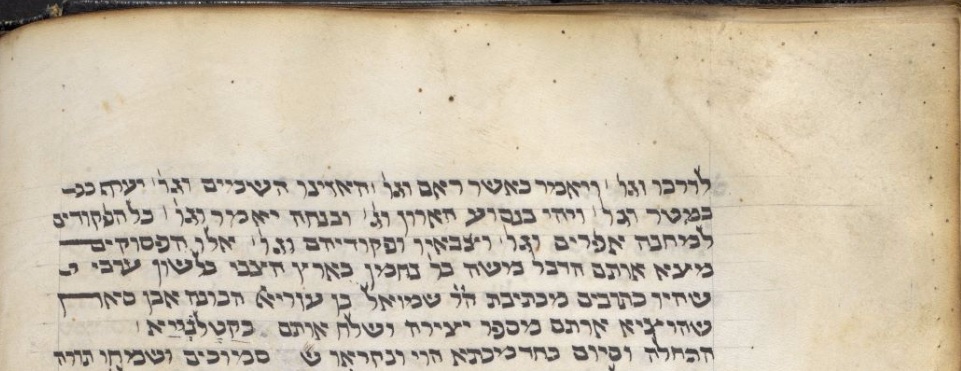 לדרכו וגו' ויאמר כאשר ראם וגו' האזינו השמים וגו'
כמטר וגו' ויהי בנסוע הארון וג' ובנחה יאמר וגו' כל הפקודים
למחנה אפרים וגו' וצבאו ופקודיהם וגו' אלו הפסוקים
מצא אותם הדבל משה בר נחמן בארץ הצבי בלשון ערבי
שהיו כתובים מכתיבת הר שמואל בן עזריא הכונה אבן סארן
שהוציא אותם מספר יצירה ושלח אותם בקטלוניא
התחלה וסיום בחד מיכתא הוי ונקראו ש סמוכים ושמחו תודה